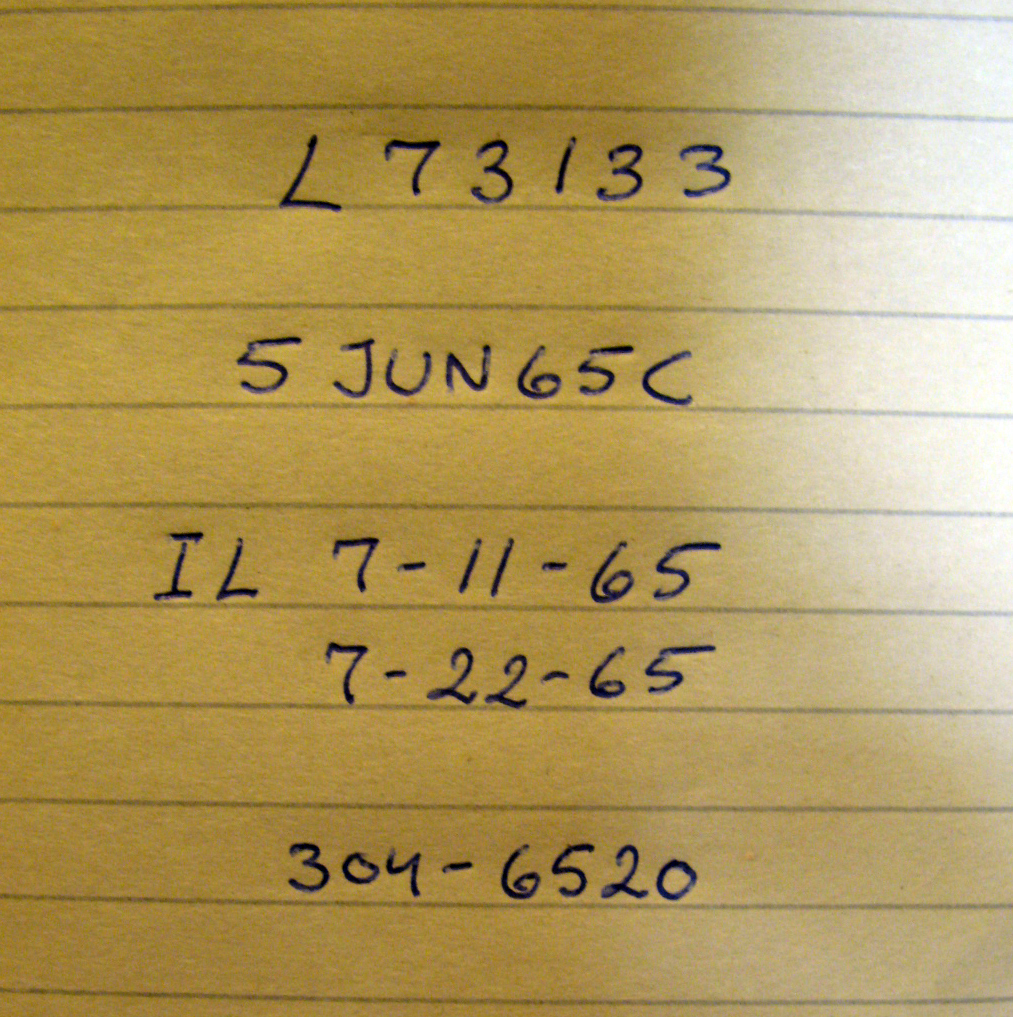 L73133
5 JUN 65C
IL 7-11-65
7-22-65
304-6520